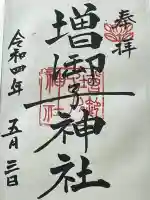 奉拝
増御子神社
令和四年
五月三日